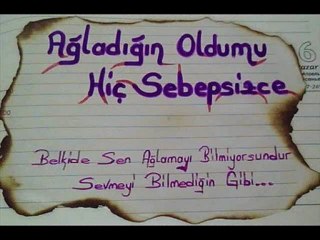 Ağladığın Oldumu
Hiç Sebepsizce
6
azar
Belkide Sen Ağlamayı Bilmiyorsundur
Sevmeyi Bilmediğin Gibi...